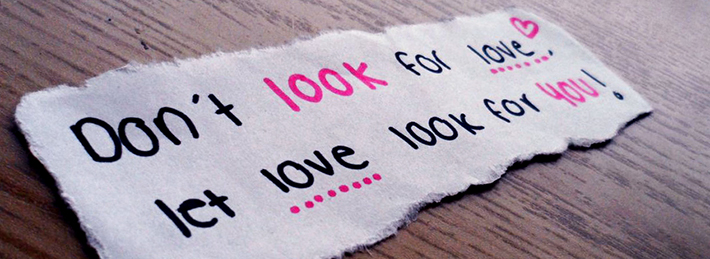 Don't look for love,
let love look for you!